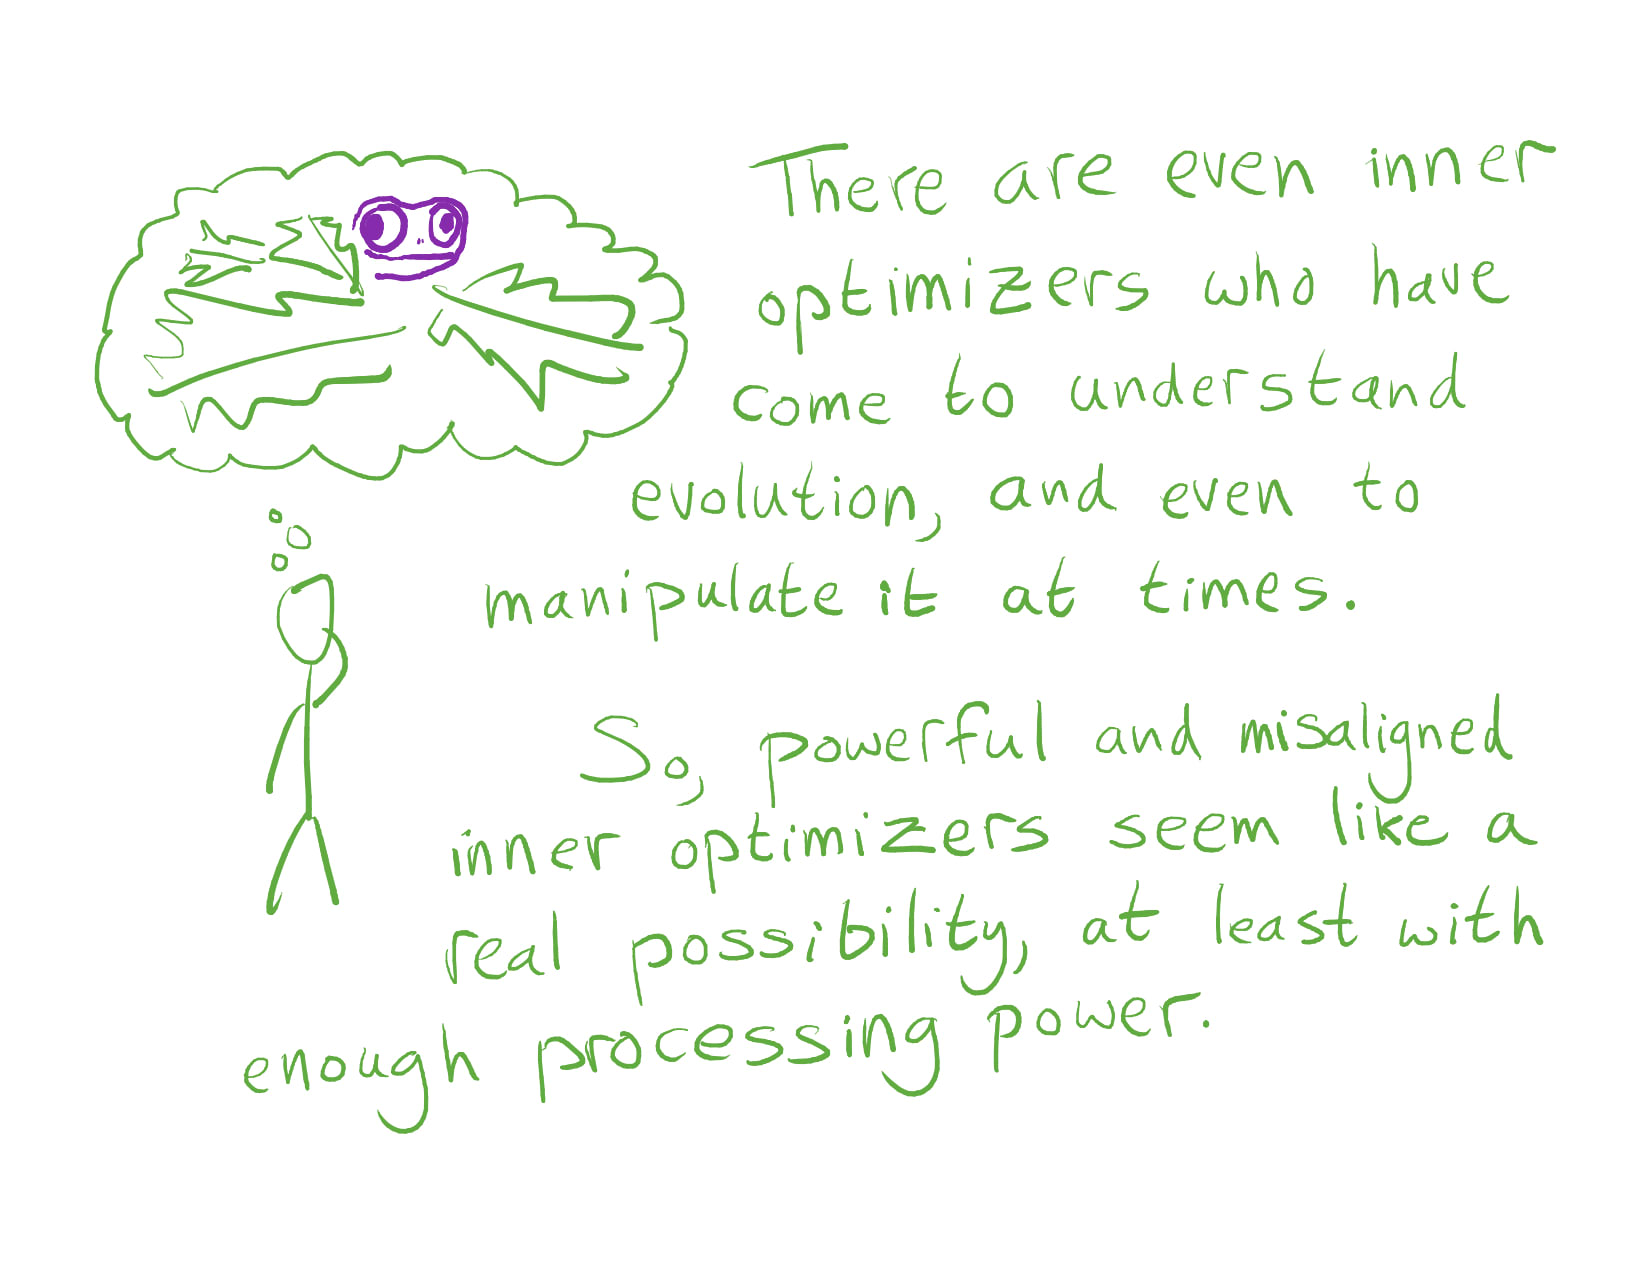 There are even inner
optimizers who have
come to understand
evolution, and even to
manipulate it at times.
So, powerful and misaligned
inner optimizers seem like a
real possibility, at least with
enough processing power.